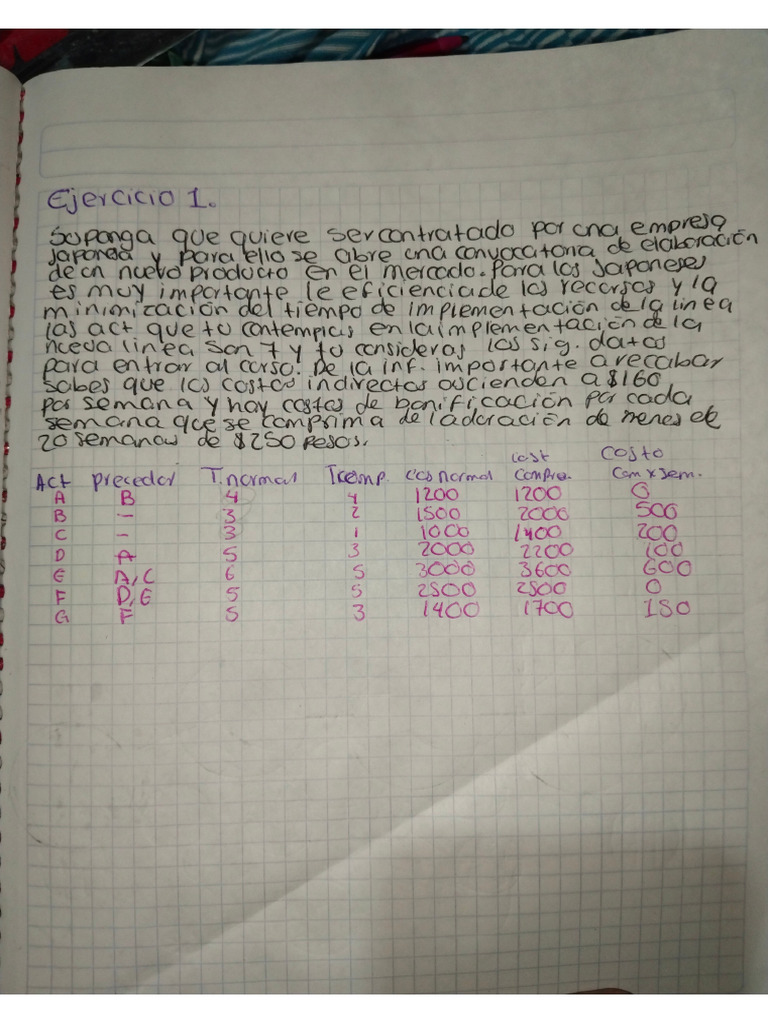 Ejercicio 1.
Suponga que quiere ser contratado por una empresa
japonesa y para ello se abre una convocatoria de elaboración
de un nuevo producto en el mercado. Para los Japoneses
es muy importante le eficiencia de los recursos y la
minimización del tiempo de implementación de la linea
las act que tu contemplas en la implementación de la
nueva linea son 7 y tu consideras los sig. datos
para entrar al curso. De la inf. importante a recabar
sabes que los costos indirectos ascienden a $160
por semana y hay costos de bonificación por cada
semana que se comprima de la duración de menos de
20 semanas de $250 pesos.
Act precedor T.normal T.comp. cos normal cost compre. costo com x sem.
A B 4 4 1200 1200 0
B - 3 2 1500 2000 500
C - 3 1 1000 1400 200
D A 5 3 2000 2200 100
E A,C 6 5 3000 3600 600
F D,E 5 5 2500 2500 0
G F 5 3 1400 1700 150